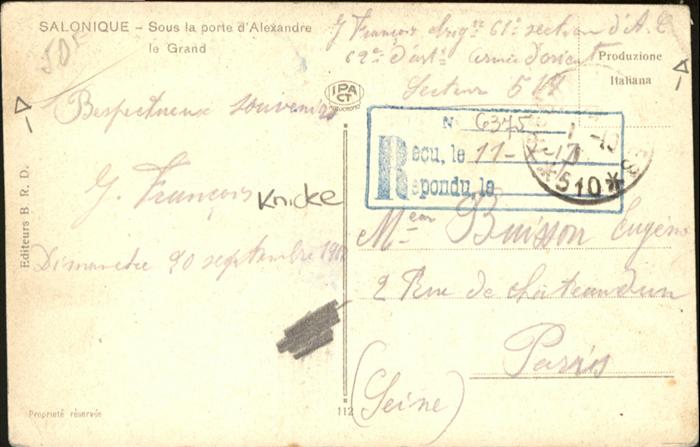 SALONIQUE – Sous la porte d'Alexandre
le Grand
50F
J François brig 61e section d'A. C
62e d'art armée d'orient
Secteur 517
Produzione
Italiana
IPA
CT
Respectueux souvenirs
J. François
Knicke
Dimanche 30 septembre 1917
Editeurs B. R. D.
No 6375
Reçu, le 11-
Répondu, le
*510*
Mr Buisson Eugène
2 Rue de Châteaudun
Paris
(Seine)
Propriété réservée
112